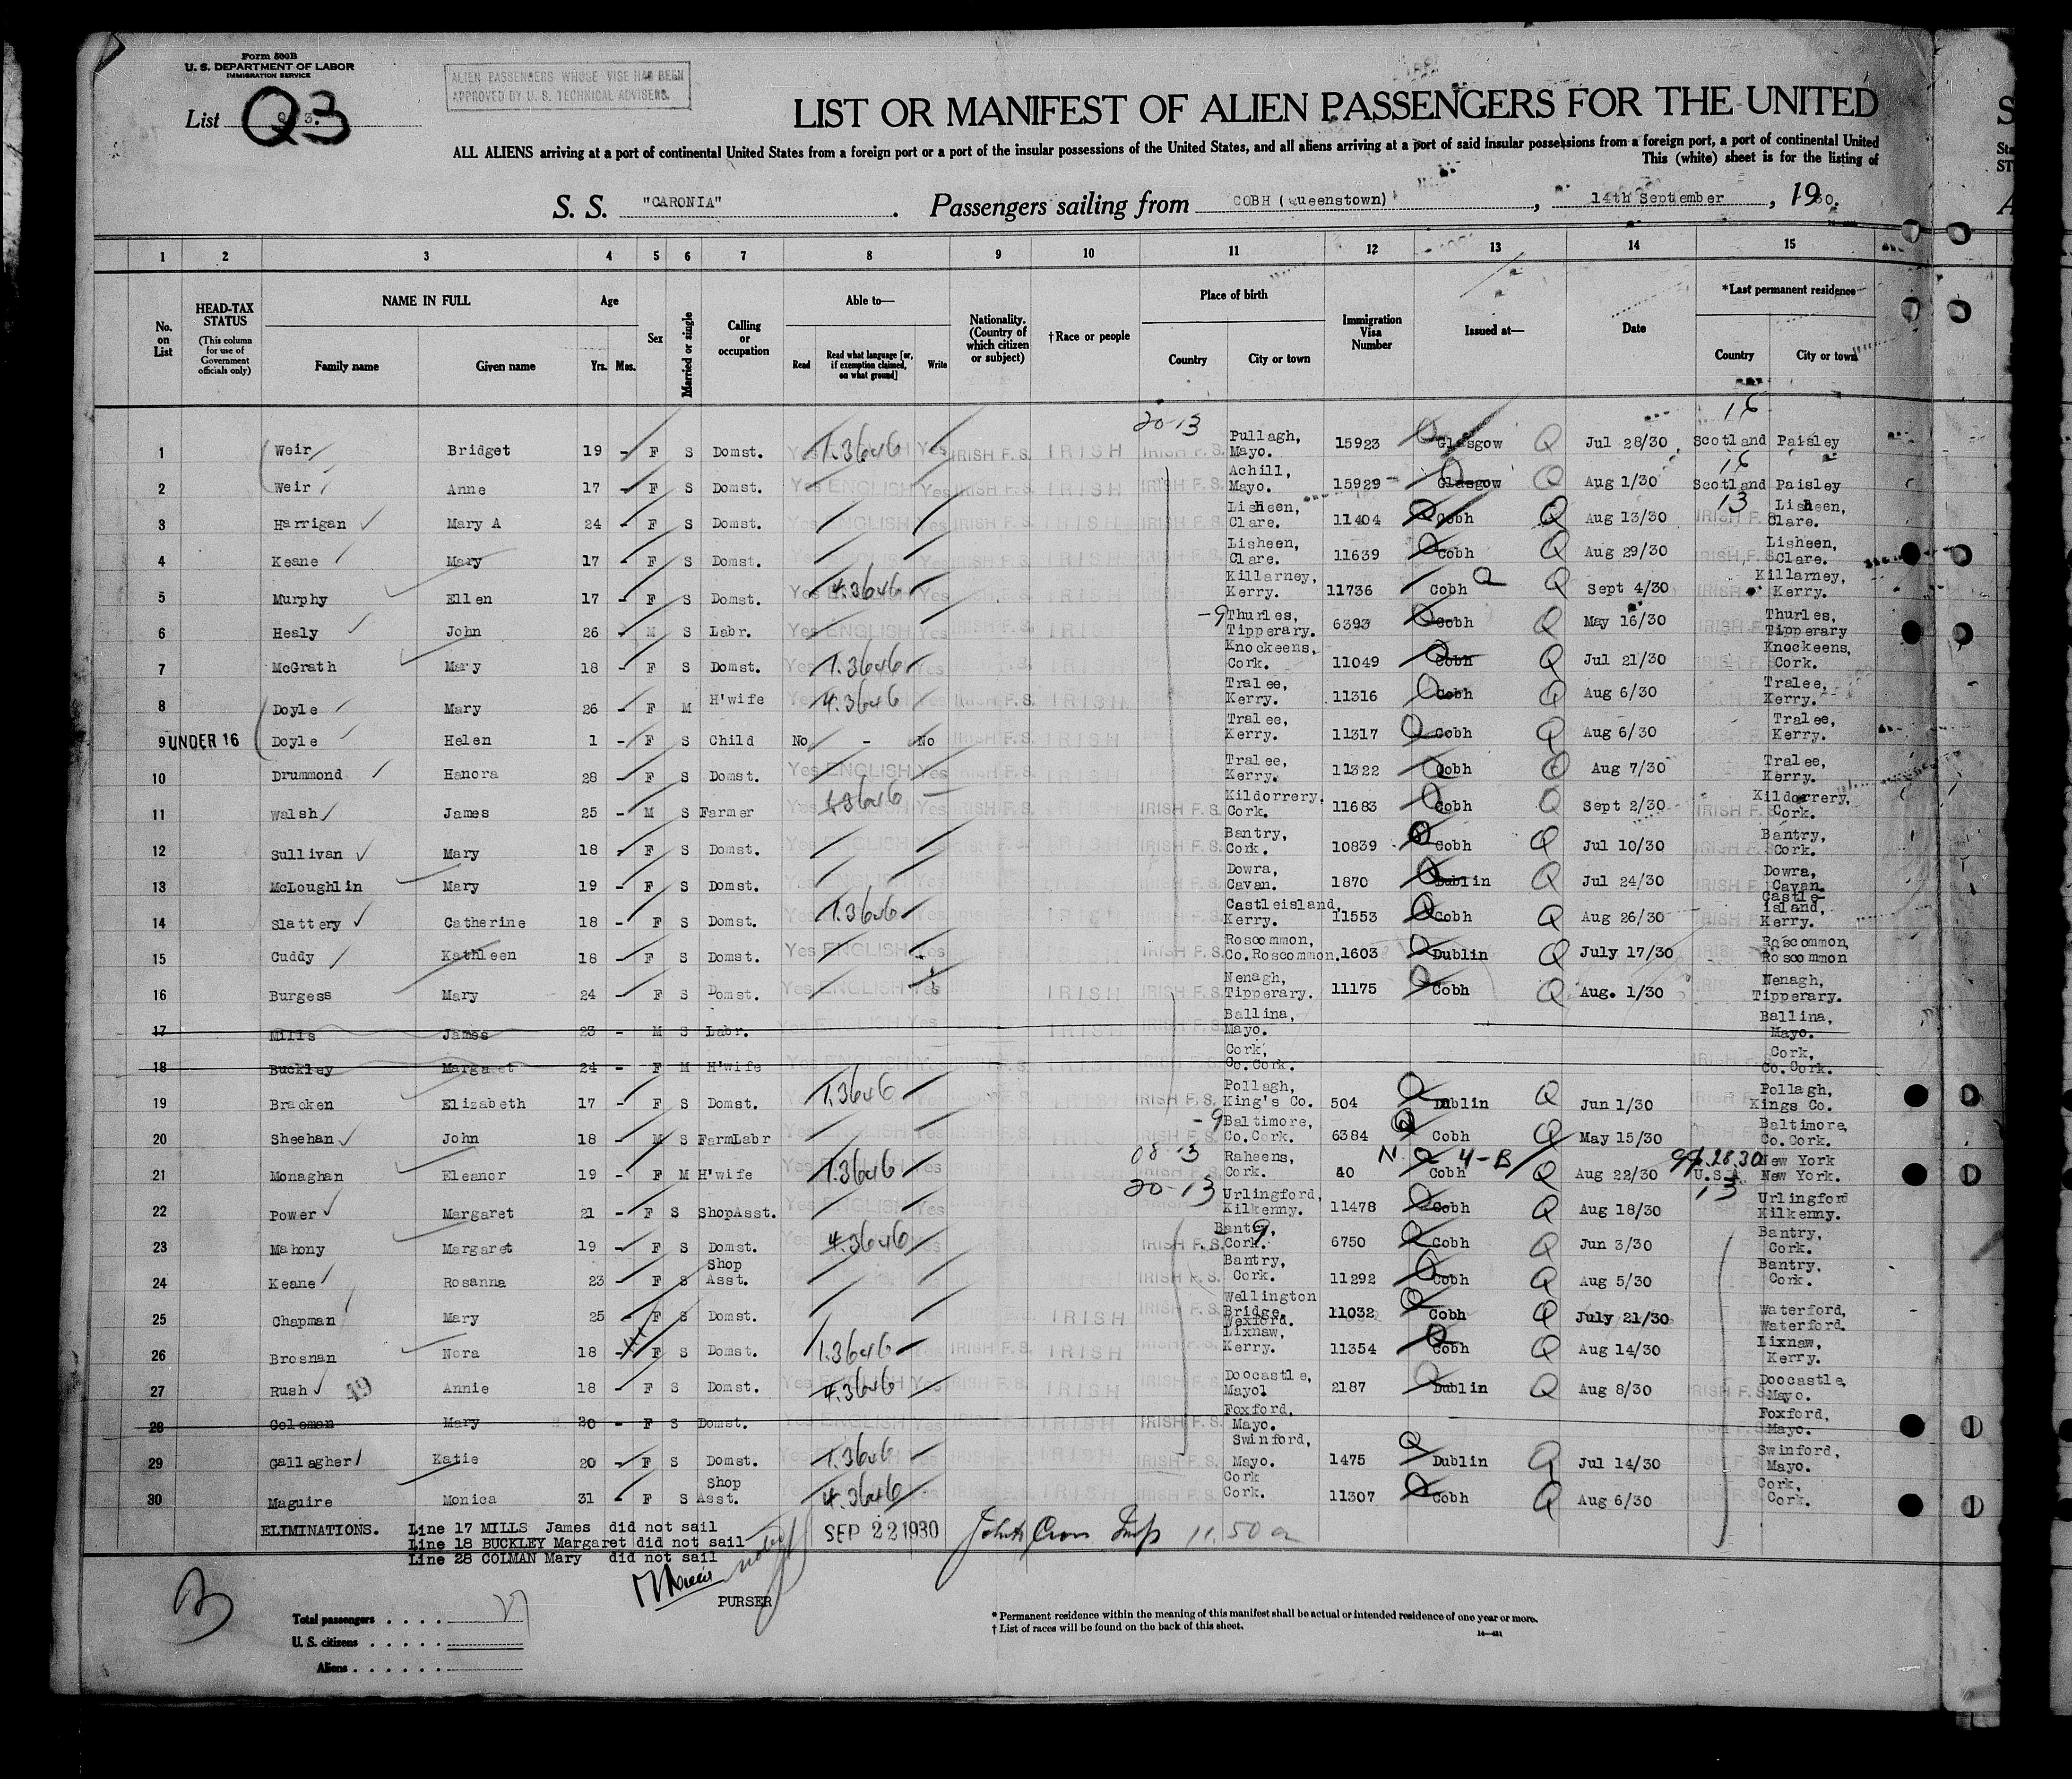 Form 500B
U. S. DEPARTMENT OF LABOR
IMMIGRATION SERVICE
ALIEN PASSENGERS WHOSE VISE HAS BEEN
APPROVED BY U. S. TECHNICAL ADVISERS.
List Q3
LIST OR MANIFEST OF ALIEN PASSENGERS FOR THE UNITED
ALL ALIENS arriving at a port of continental United States from a foreign port or a port of the insular possessions of the United States, and all aliens arriving at a port of said insular possessions from a foreign port, a port of continental United
This (white) sheet is for the listing of
S. S. "CARONIA". Passengers sailing from COBH (Queenstown), 14th September, 1930.
1 2 3 4 5 6 7 8 9 10 11 12 13 14 15
No. on List
HEAD-TAX STATUS (This column for use of Government officials only)
NAME IN FULL Family name Given name
Age Yrs. Mos.
Sex
Married or single
Calling or occupation
Able to— Read Read what language [or, if exemption claimed, on what ground] Write
Nationality. (Country of which citizen or subject)
†Race or people
Place of birth Country City or town
Immigration Visa Number
Issued at—
Date
*Last permanent residence Country City or town
20-13 16
1 Weir Bridget 19 - F S Domst. Yes ENGLISH 1.3646 Yes IRISH F.S. IRISH IRISH F.S. Pullagh, Mayo. 15923 Glasgow Q Jul 28/30 Scotland Paisley
16
2 Weir Anne 17 - F S Domst. Yes ENGLISH Yes IRISH F.S. IRISH IRISH F.S. Achill, Mayo. 15929 Glasgow Q Aug 1/30 Scotland Paisley
13
3 Harrigan Mary A 24 - F S Domst. Yes ENGLISH Yes IRISH F.S. IRISH IRISH F.S. Lisheen, Clare. 11404 Cobh Q Aug 13/30 IRISH F.S. Lisheen, Clare.
4 Keane Mary 17 - F S Domst. Lisheen, Clare. 11639 Cobh Q Aug 29/30 IRISH F.S. Lisheen, Clare.
5 Murphy Ellen 17 - F S Domst. Yes ENGLISH 4.3646 Yes Killarney, Kerry. 11736 Cobh Q Q Sept 4/30 Killarney, Kerry.
6 Healy John 26 M S Labr. Yes ENGLISH Yes -9 Thurles, Tipperary. 6393 Cobh Q May 16/30 Thurles, Tipperary
7 McGrath Mary 18 - F S Domst. 1.3646 Yes Knockeens, Cork. 11049 Cobh Q Jul 21/30 Knockeens, Cork.
8 Doyle Mary 26 - F M H'wife 4.3646 IRISH F.S. IRISH Tralee, Kerry. 11316 Cobh Q Aug 6/30 Tralee, Kerry.
9 UNDER 16 Doyle Helen 1 - F S Child No - No IRISH F.S. IRISH Tralee, Kerry. 11317 Cobh Q Aug 6/30 Tralee, Kerry.
10 Drummond Hanora 28 - F S Domst. Yes ENGLISH Yes Tralee, Kerry. 11322 Cobh Q Aug 7/30 Tralee, Kerry.
11 Walsh James 25 - M S Farmer 3646 Yes IRISH F.S. Kildorrery, Cork. 11683 Cobh Q Sept 2/30 IRISH F.S. Kildorrery, Cork.
12 Sullivan Mary 18 - F S Domst. Bantry, Cork. 10839 Cobh Q Jul 10/30 Bantry, Cork.
13 McLoughlin Mary 19 - F S Domst. Dowra, Cavan. 1870 Dublin Q Jul 24/30 Dowra, Cavan.
14 Slattery Catherine 18 - F S Domst. 1.3646 Castleisland, Kerry. 11553 Cobh Q Aug 26/30 Castle- island, Kerry.
15 Cuddy Kathleen 18 - F S Domst. Yes ENGLISH Yes IRISH F.S. Roscommon, Co.Roscommon. 1603 Dublin Q July 17/30 Roscommon, Roscommon
16 Burgess Mary 24 - F S Domst. Yes ENGLISH Yes IRISH IRISH F.S. Nenagh, Tipperary. 11175 Cobh Q Aug. 1/30 Nenagh, Tipperary.
17 Mills James 23 - M S Labr. Ballina, Mayo. Ballina, Mayo.
18 Buckley Margaret 24 - F M H'wife Cork, Co.Cork. Cork, Co.Cork.
19 Bracken Elizabeth 17 - F S Domst. 1.3646 IRISH F.S. Pollagh, King's Co. 504 Dublin Q Jun 1/30 Pollagh, Kings Co.
20 Sheehan John 18 - M S FarmLabr -9 Baltimore, Co.Cork. 6384 Cobh Q May 15/30 Baltimore, Co.Cork.
21 Monaghan Eleanor 19 - F M H'wife 1.3646 Yes 08-13 Raheens, Cork. 40 N Q 4-B Cobh Q Aug 22/30 U.S.A. New York New York.
20-13 13
22 Power Margaret 21 - F S ShopAsst. Yes ENGLISH Yes Urlingford, Kilkenny. 11478 Cobh Q Aug 18/30 Urlingford Kilkenny.
23 Mahony Margaret 19 - F S Domst. 4.3646 IRISH F.S. 9 Bantry, Cork. 6750 Cobh Q Jun 3/30 Bantry, Cork.
24 Keane Rosanna 23 - F S Shop Asst. IRISH F.S. Bantry, Cork. 11292 Cobh Q Aug 5/30 Bantry, Cork.
25 Chapman Mary 25 - F S Domst. IRISH IRISH F.S. Wellington Bridge, Wexford. 11032 Cobh Q July 21/30 Waterford, Waterford.
26 Brosnan Nora 18 - F S Domst. 1.3646 IRISH F.S. IRISH Lixnaw, Kerry. 11354 Cobh Q Aug 14/30 Lixnaw, Kerry.
27 Rush 19 Annie 18 - F S Domst. Yes ENGLISH 4.3646 Yes IRISH F.S. IRISH IRISH F.S. Doocastle, Mayol 2187 Dublin Q Aug 8/30 IRISH F.S. Doocastle, Mayo.
28 Coleman Mary 20 - F S Domst. IRISH F.S. Foxford, Mayo. Foxford, Mayo.
29 Gallagher Katie 20 - F S Domst. 1.3646 IRISH F.S. Swinford, Mayo. 1475 Dublin Q Jul 14/30 Swinford, Mayo.
30 Maguire Monica 31 - F S Shop Asst. 4.3646 IRISH F.S. Cork Cork. 11307 Cobh Q Aug 6/30 Cork, Cork.
ELIMINATIONS. Line 17 MILLS James did not sail
Line 18 BUCKLEY Margaret did not sail
Line 28 COLMAN Mary did not sail
SEP 22 1930 11.50 a
PURSER
Total passengers . . . . 27
U. S. citizens . . . . .
Aliens . . . . . .
* Permanent residence within the meaning of this manifest shall be actual or intended residence of one year or more.
† List of races will be found on the back of this sheet.